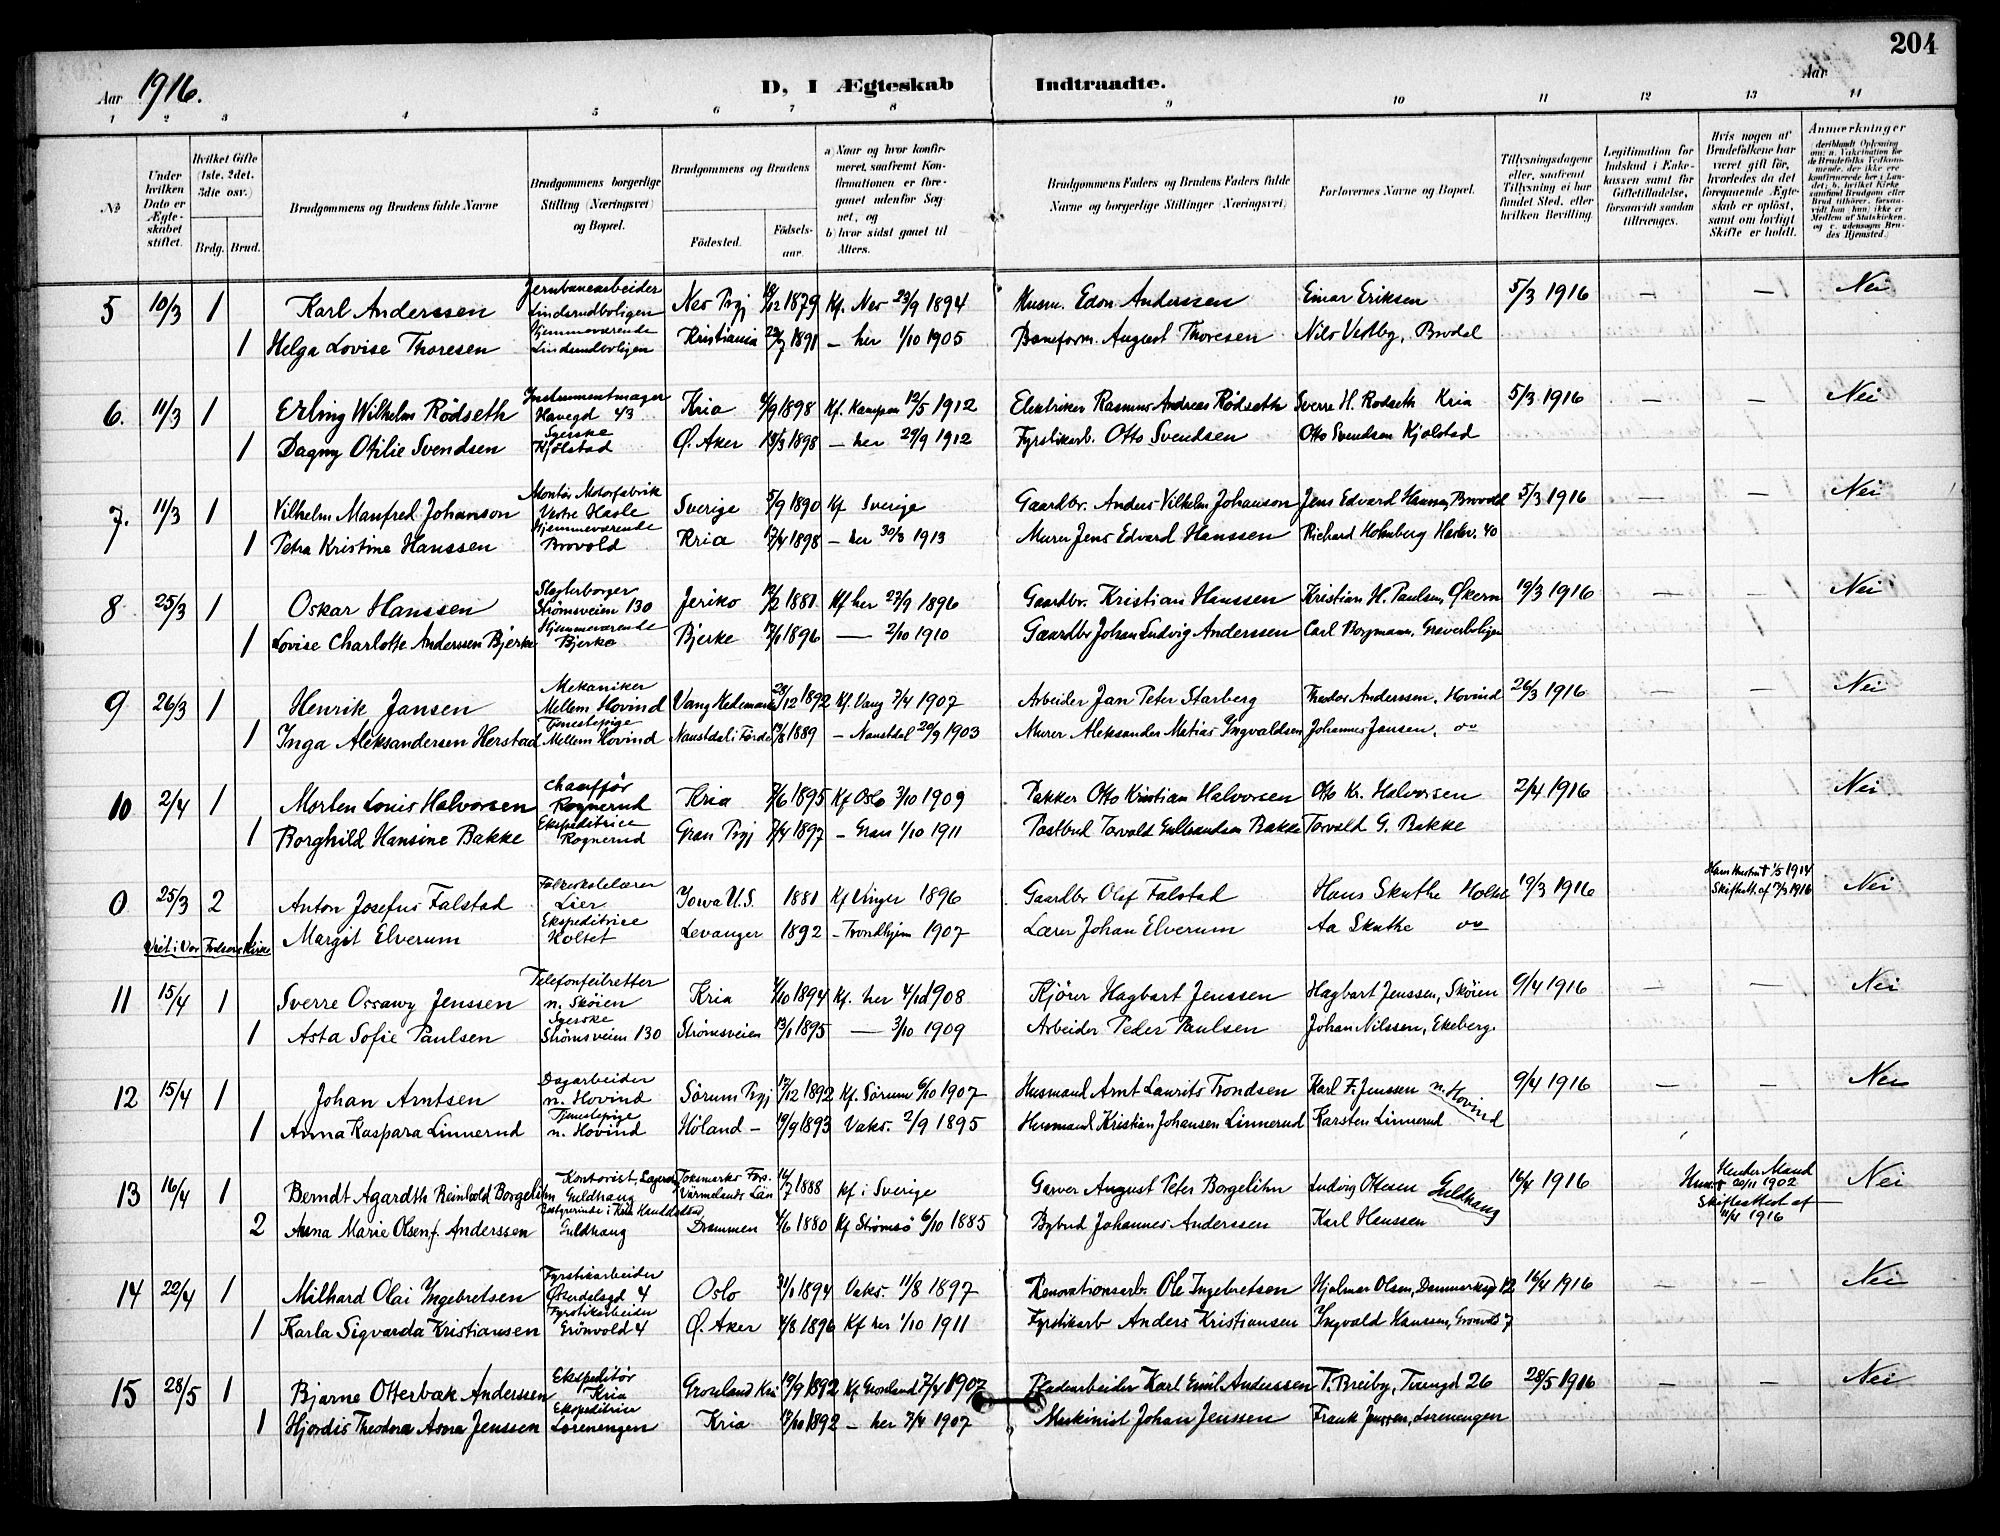 204
Aar 1916.
D, I Ægteskab Indtraadte.
Aar
1 2 3 4 5 6 7 8 9 10 11 12 13 14
№
Under hvilken Dato er Ægteskabet stiftet.
Hvilket Gifte (1ste, 2det, 3die osv.)
Brdg. Brud.
Brudgommens og Brudens fulde Navne
Brudgommens borgerlige Stilling (Næringsvei) og Bopæl.
Brudgommens og Brudens
Fødested.
Fødselsaar.
a) Naar og hvor konfirmeret, saafremt Konfirmationen er foregaaet udenfor Sognet, og
b) hvor sidst gaaet til Alters.
Brudgommens Faders og Brudens Faders fulde Navne og borgerlige Stillinger (Næringsvei)
Forlovernes Navne og Bopæl.
Tillysningsdagene eller, saafremt Tillysning ei har fundet Sted, efter hvilken Bevilling.
Legitimation for Indskud i Enkekassen samt for Giftetilladelse, forsaavidt saadan tiltrænges.
Hvis nogen af Brudefolkene har været gift før, hvorledes da det foregaaende Ægteskab er opløst, samt om lovligt Skifte er holdt.
Anmerkninger
deriblandt Oplysning om: a. Vaksination for de Brudefolks Vedkommende, der ikke ere konfirmerede her i Landet; b. hvilket Kirkesamfund Brudgom eller Brud tilhører, forsaavidt han (hun) ikke er Medlem af Statskirken, og c. udensogns Brudes Hjemsted.)
5 10/3 1 Karl Anderssen Jernbanearbeider Linderudboligen Nes Prgj 18/12 1879 Kf. Nes 23/9 1894 Husm. Edon Anderssen Einar Eriksen 5/3 1916 — — Nei
1 Helga Lovise Thoresen Hjemmeværende Linderudboligen Kristiania 1891 — her 1/10 1905 Baneform. August Thoresen Nils Vestby, Brodal
6. 11/3 1 Erling Wilhelm Rødseth Instrumentmager Havegd 43 Kria 4/9 1898 Kf. Kampen 12/5 1912 Elektriker Rasmus Andreas Rødseth Sverre H. Rødseth Kria 5/3 1916 — — Nei
1 Dagny Otilie Svendsen Syerske Kjølstad Ø. Aker 1898 — her 29/9 1912 Fyrstikarb. Otto Svendsen Otto Svendsen Kjølstad
7. 11/3 1 Vilhelm Manfred Johanson Montør Motorfabrik Vestre Hasle Sverige 5/9 1890 Kf Sverige Gaardbr. Anders Vilhelm Johanson Jens Edvard Hanssen, 5/3 1916 — — Nei
1 Petra Kristine Hanssen Hjemmeværende Brovold Kria 17/4 1898 — her 30/3 1913 Murer Jens Edvard Hanssen Richard Holmberg Haslev. 40
8 25/3 1 Oskar Hanssen Slagterborger Strømsveien 130 Jeriko 12/2 1881 Kf her 27/9 1896 Gaardbr. Kristian Hanssen Kristian H. Paulsen, Økern 19/3 1916 — — Nei
1 Lovise Charlotte Anderssen Bjerke Hjemmeværende Bjerke Bjerke 1896 — 2/10 1910 Gaardbr Johan Ludvig Anderssen Carl Borgmann, Graverboligen
9 26/3 1 Henrik Jansen Mekaniker Mellem Hovind Vang Hedemark 28/12 1892 Kf. Vang 7/4 1907 Arbeider Jan Peter Starberg Theodor Anderssen, Hovind 26/3 1916 — — Nei
1 Inga Aleksandersen Herstad Tjenestepige Mellem Hovind Naustdal i Førde 1889 — Naustdal 20/9 1903 Murer Aleksander Matias Ingvaldsen Johannes Jansen, oo
10 2/4 1 Morten Louis Halvorsen Chauffør Rognerud Kria 7/6 1895 Kf Oslo 3/10 1909 Pakker Otto Kristian Halvorsen Otto Kr. Halvorsen 2/4 1916 Nei
1 Borghild Hansine Bakke Ekspeditrice Rognerud Gran Prgj 7/4 1897 — Gran 1/10 1911 Postbud Torvald Gulbrandsen Bakke Torvald G. Bakke
0 25/3 2 Anton Josefus Falstad Folkeskolelærer Lier Iowa U.S. 1881 Kf Vinger 1896 Gaardbr Olof Falstad Hans Skuthe Holtet 19/3 1916 Hans Hustru † 1/5 1914 Skifteatt. af 7/3 1916 Nei
Viet i Vor Frelsers Kirke 1 Margit Elverum Ekspeditrice Holtet Levanger 1892 — Trondhjem 1907 Lærer Johan Elverum Aa Skuthe oo
11 15/4 1 Sverre Ossawy Jenssen Telefonfeilretter n. Skøien Kria 4/10 1894 Kf. her 4/10 1908 Kjører Hagbart Jenssen Hagbart Jenssen, Skøien 9/4 1916 Nei
1 Asta Sofie Paulsen Syerske Strømsveien 130 Strømsveien 13/1 1895 — 3/10 1909 Arbeider Peder Paulsen Johan Nilssen, Ekeberg.
12 15/4 1 Johan Arntsen Dagarbeider n. Hovind Sørum Prgj 17/12 1892 Kf. Sørum 6/10 1907 Husmand Arnt Laurits Trondsen Karl F. Jenssen n. Hovind 9/4 1916 — — Nei
1 Anna Kaspara Linnerud Tjenestepige n. Hovind Høland — 19/9 1893 Vaks. 2/9 1895 Husmand Kristian Johansen Linnerud Karsten Linnerud
13 16/4 1 Berndt Agardth Reinhold Borgelihn Kontorist, Guldhaug Tøksmarks Fors. Värmelands Län 16/7 1888 Kf i Sverige Garver August Peter Borgelihn Ludvig Olesen Guldhaug 16/4 1916 Hendes Mand † 20/11 1902 Skifteattest af 11/4 1916 Nei
2 Anna Marie Olsen f. Anderssen Bestyrerinde i Guldhaug Drammen 4/6 1880 Kf Strømsø 6/10 1885 Bybud Johannes Anderssen Karl Hanssen
14 22/4 1 Milhard Olai Ingebretsen Fyrstikarbeider Østerdalsgd 4 Oslo 31/1 1894 Vaks. 11/8 1897 Renovationsarb. Ole Ingebretsen Hjalmar Olsen, Danmarksgd 12 16/4 1916 — — Nei
1 Karla Sigvarda Kristiansen Fyrstikarbeider Grønvold 4 Ø. Aker 4/8 1896 Kf her 1/10 1911 Fyrstikarb Anders Kristiansen Ingvald Hanssen, Grønvold 7
15 28/5 1 Bjarne Otterbæk Anderssen Ekspeditør Kria Grønland Kria 19/9 1892 Kf. Grønland 7/4 1907 Pladearbeider Karl Emil Anderssen T. Breiby, Tvengd 26 28/5 1916 Nei
1 Hjørdis Theodora Asora Jenssen Ekspeditrice Lørenengen Kria 1892 — her 7/4 1907 Maskinist Johan Jenssen Frank Jenssen, Lørenengen